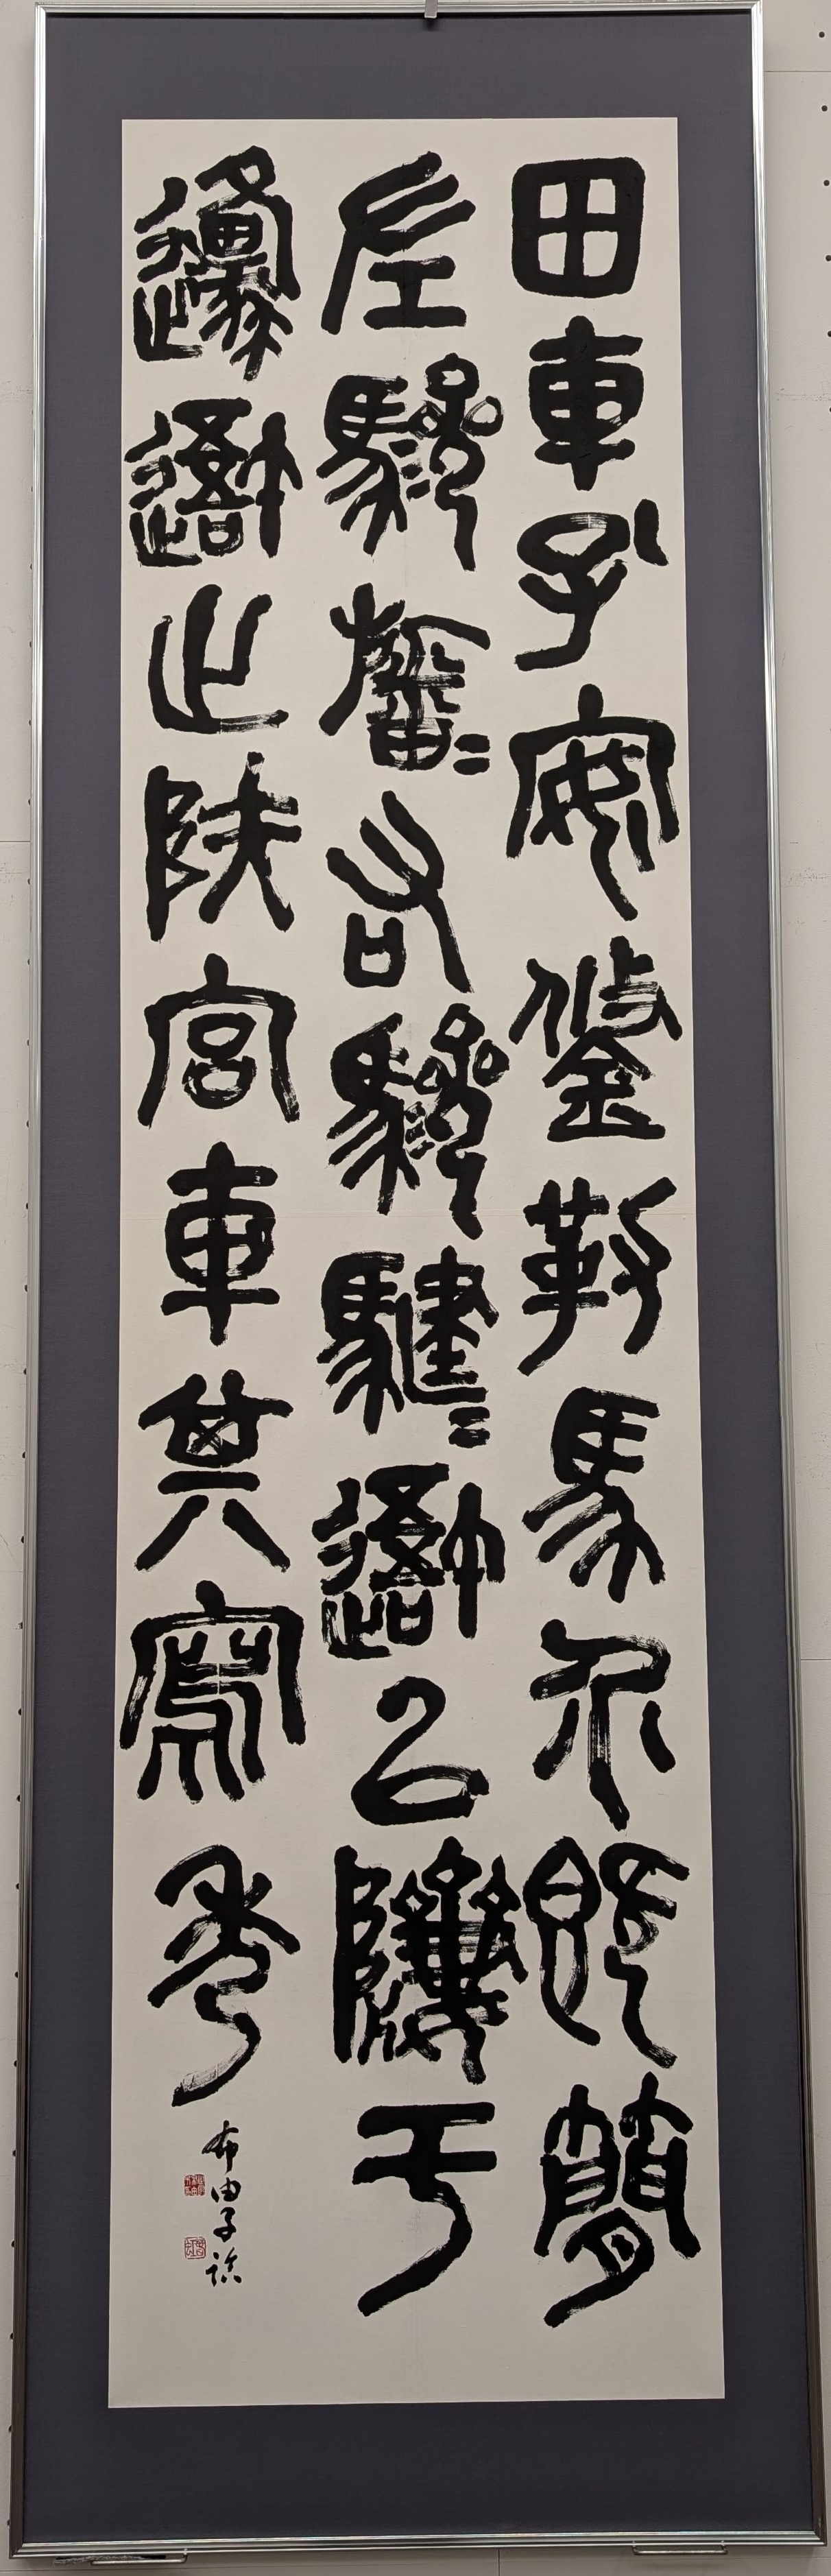 田車孔安鋚勒馬介既簡
左驂旛〻右驂騝〻吾以隮于
邍吾止陜宮車其寫秀
布由子臨